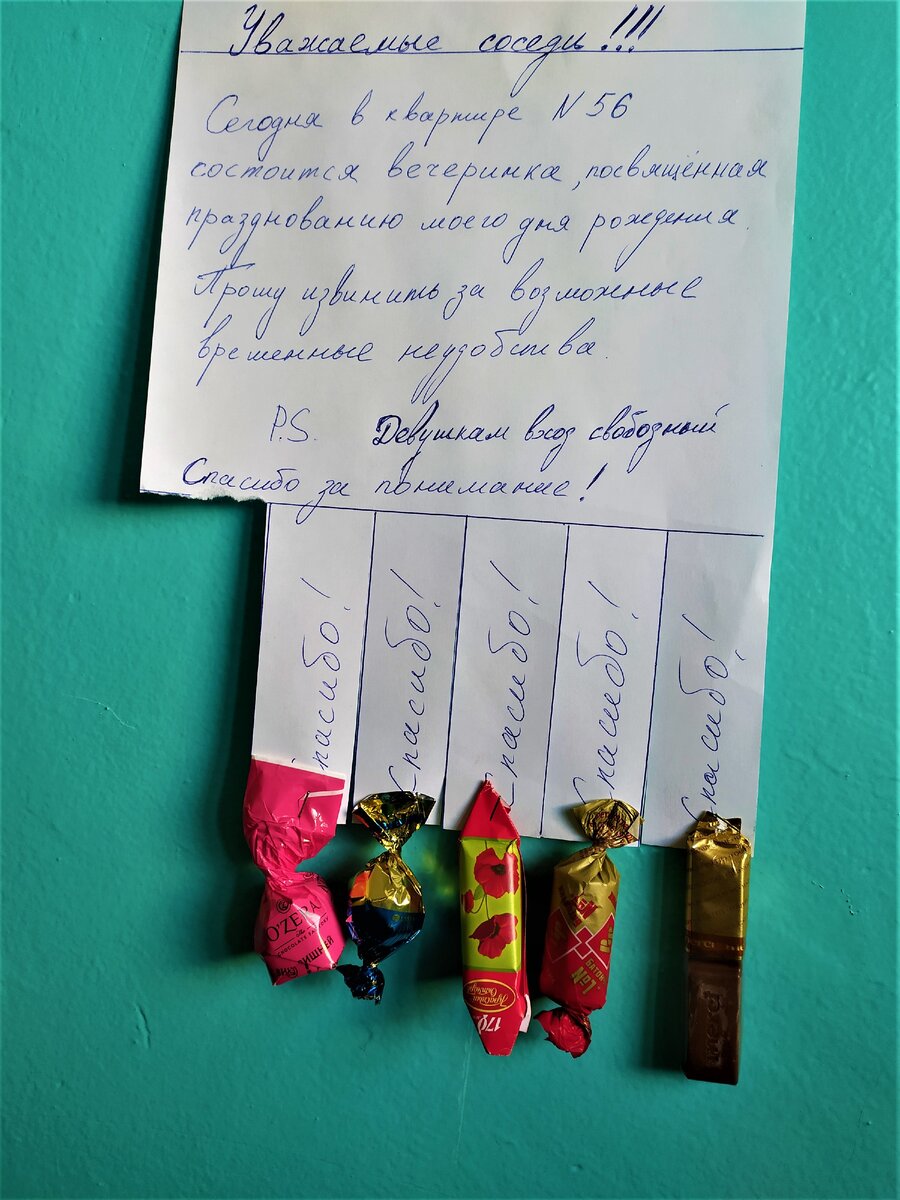 Уважаемые соседи!!!
Сегодня в квартире N 56
состоится вечеринка, посвящённая
празднованию моего дня рождения.
Прошу извинить за возможные
временные неудобства.
P.S. Девушкам вход свободный
Спасибо за понимание!
Спасибо!
Спасибо!
Спасибо!
Спасибо!
Спасибо!
O'ZERA
CHOCOLATE FACTORY
Красный
Октябрь
170
merci